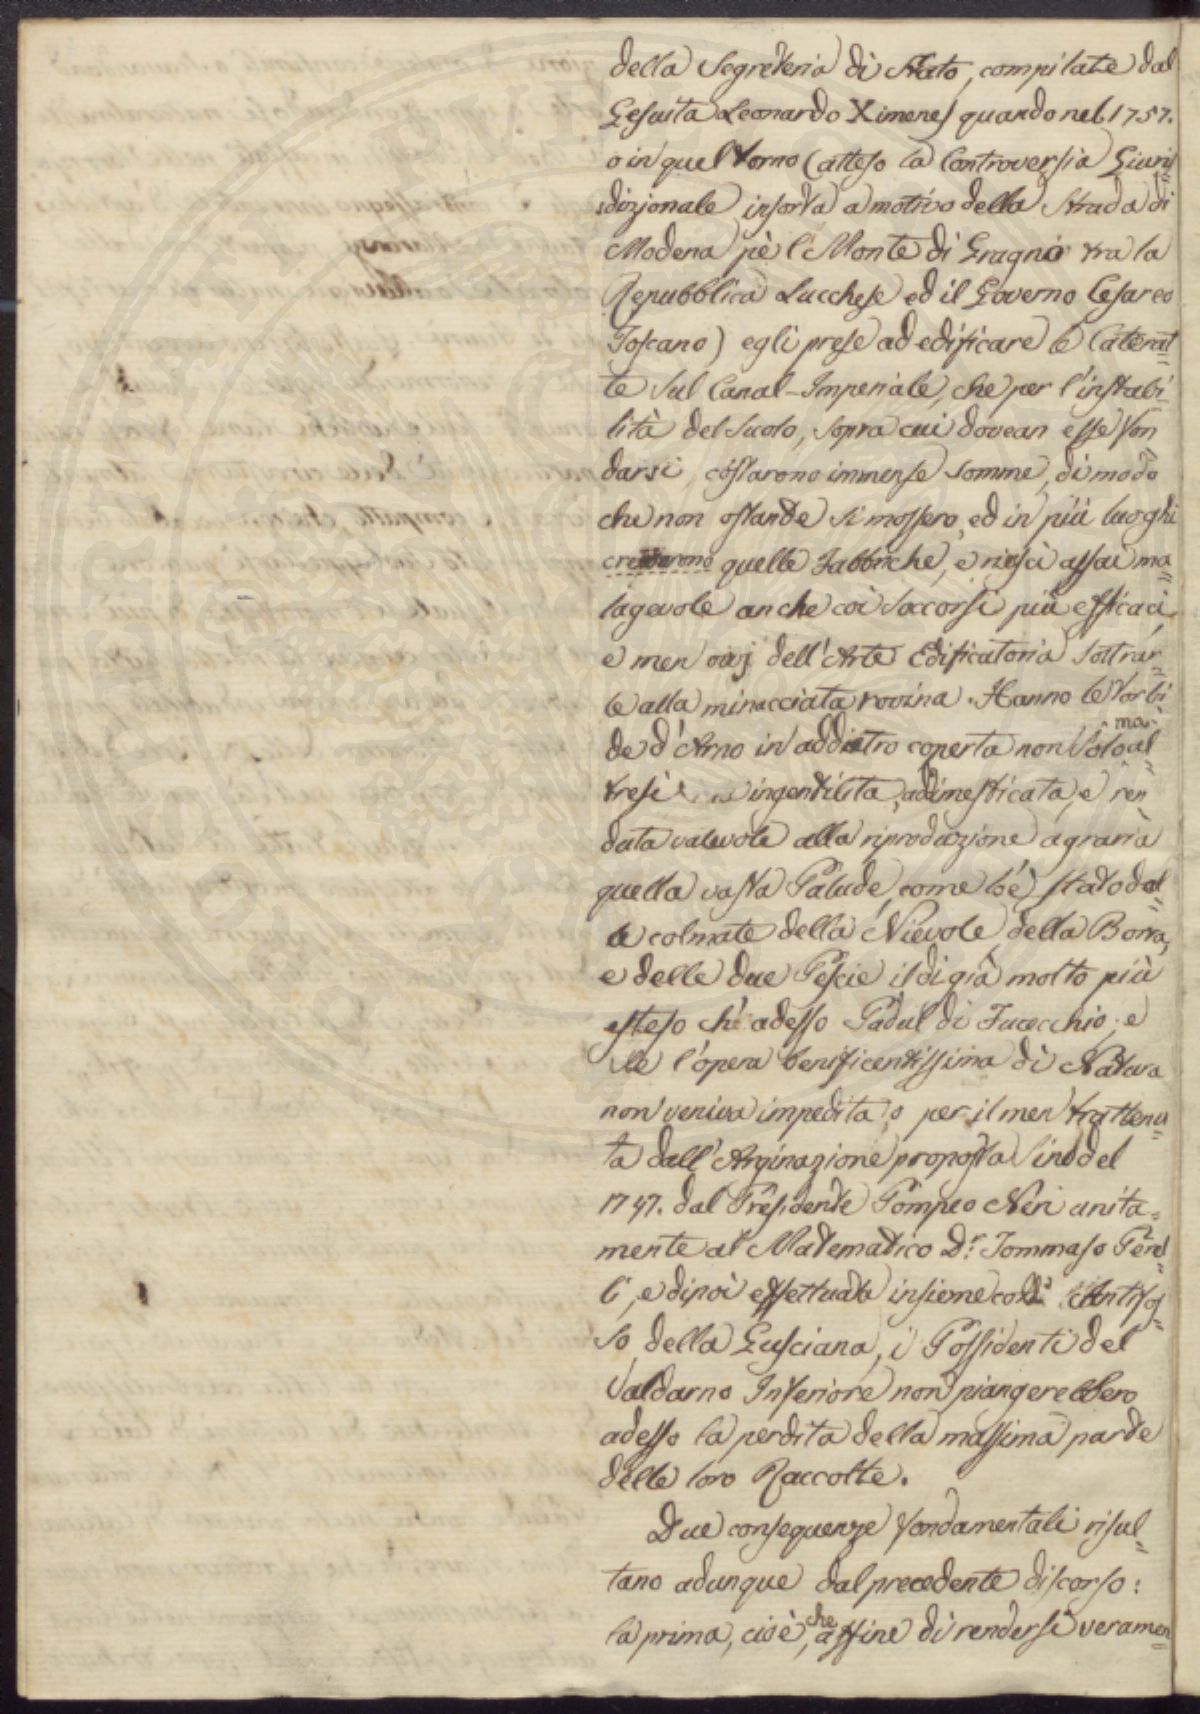 della Segreteria di Stato, compilate dal
Gesuita Leonardo Ximenes quando nel 1757.
o in quel torno (atteso la Controversia Giuris=
sdizionale insorta a motivo della Strada di
Modena pè l'Monte di Gragno tra la
Repubblica Lucchese ed il Governo Cesareo
Toscano) egli prese ad edificare le Caterat=
te sul Canal-Imperiale, che per l'instabi-
lità del Suolo, sopra cui dovean esse fon
darsi, costarono immense somme, di modo
che non ostante si mossero, ed in più luoghi
creparono quelle Fabbriche, e riescì assai ma=
lagevole anche coi soccorsi più efficaci,
e men ovvj dell'Arte Edificatoria sottrar=
le alla minacciata rovina. Hanno le Torbi
de d'Arno in addietro coperta non Solo ma al=
tresì ingentilita, addimesticata, e ren
duta valevole alla riproduzione agraria
quella vasta Palude, come lo è stato dal=
le colmate della Nievole, della Borra,
e delle due Pescie il di già molto più
esteso ch'è adesso Padul di Fucecchio; e
se l'opera benificentissima di Natura
non veniva impedita, o per il men trattenu=
ta dall'Arginazione proposta sino del
1747. dal Presidente Pompeo Neri unita=
mente al Matematico D.r Tommaso Perel=
li, e dipoi effettuata insieme coll' Antifos=
so della Gusciana, i Possidenti del
Valdarno Inferiore non piangerebbero
adesso la perdita della massima parte
delle loro Raccolte.
Due conseguenze fondamentali risul=
tano adunque dal precedente discorso:
la prima, cioè, che affine di rendersi veramen=